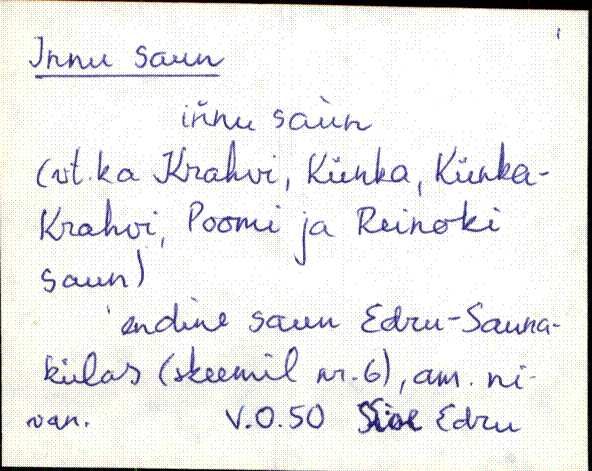 Innu saun
iñnu saùn
(vt. ka Krahvi, Künka, Künka-
Krahvi, Poomi ja Reinoki
saun)
endine saun Edru-Sauna-
külas (skeemil nr. 6), am. ni-
van. V.O.50 Edru